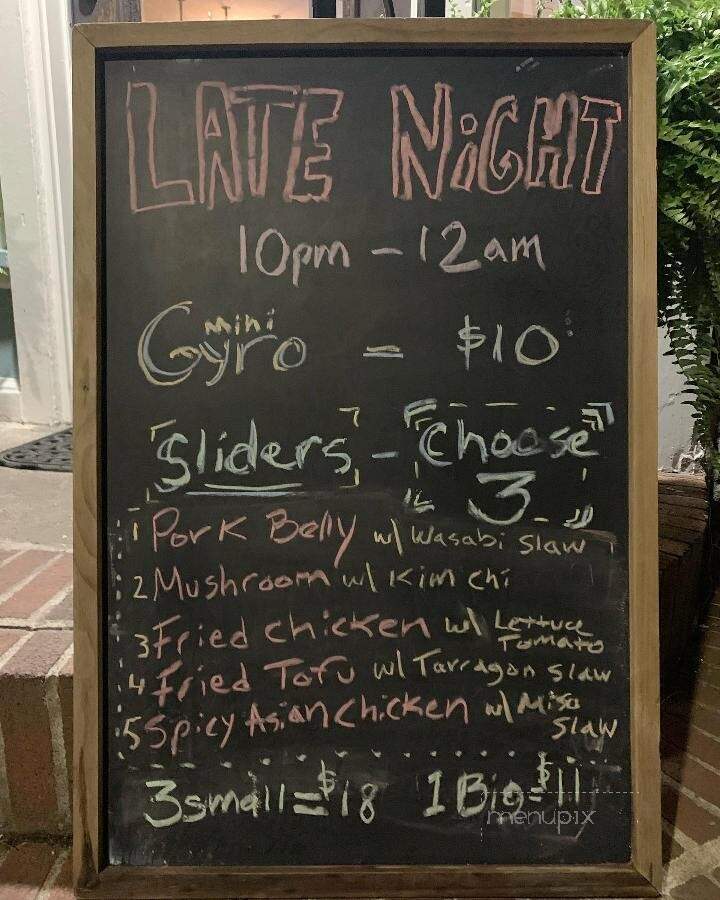 LATE NiGHT
10pm - 12am
mini
Gyro = $10
Sliders - Choose
3
1 Pork Belly w/ Wasabi slaw
2 Mushroom w/ Kim chi
3 Fried chicken w/ Lettuce
Tomato
4 Fried Tofu w/ Tarragon slaw
5 Spicy Asian chicken w/ Miso
slaw
3 small = $18 1 Big = $11
menupix